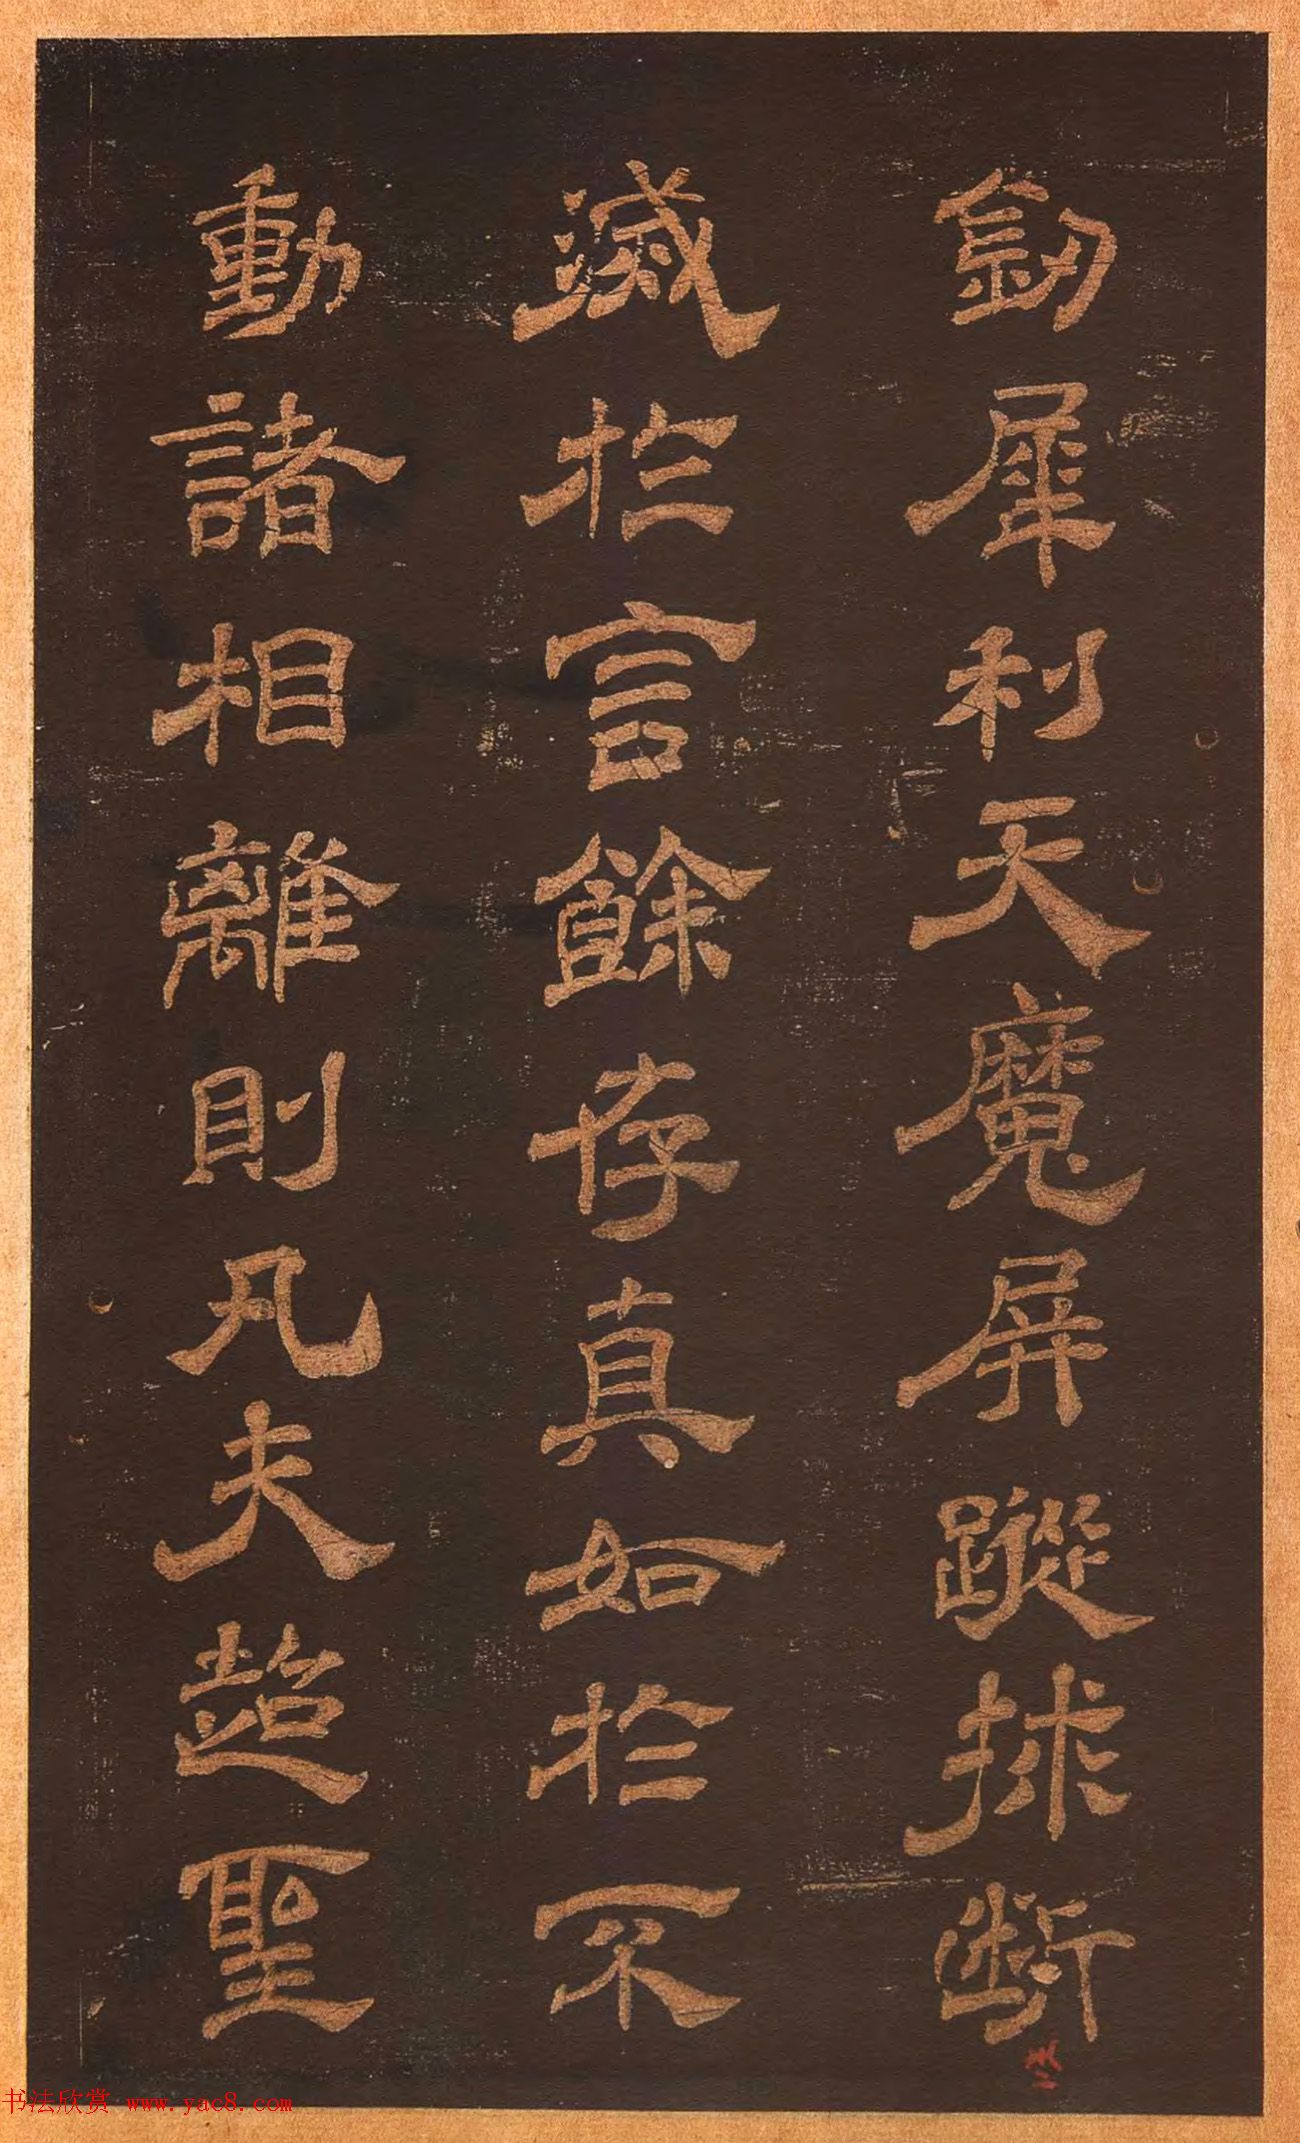 釼犀利天魔屏蹤捄斷
滅於言餘存真如於不
動諸相離則凡夫超聖
书法欣赏 www.yac8.com